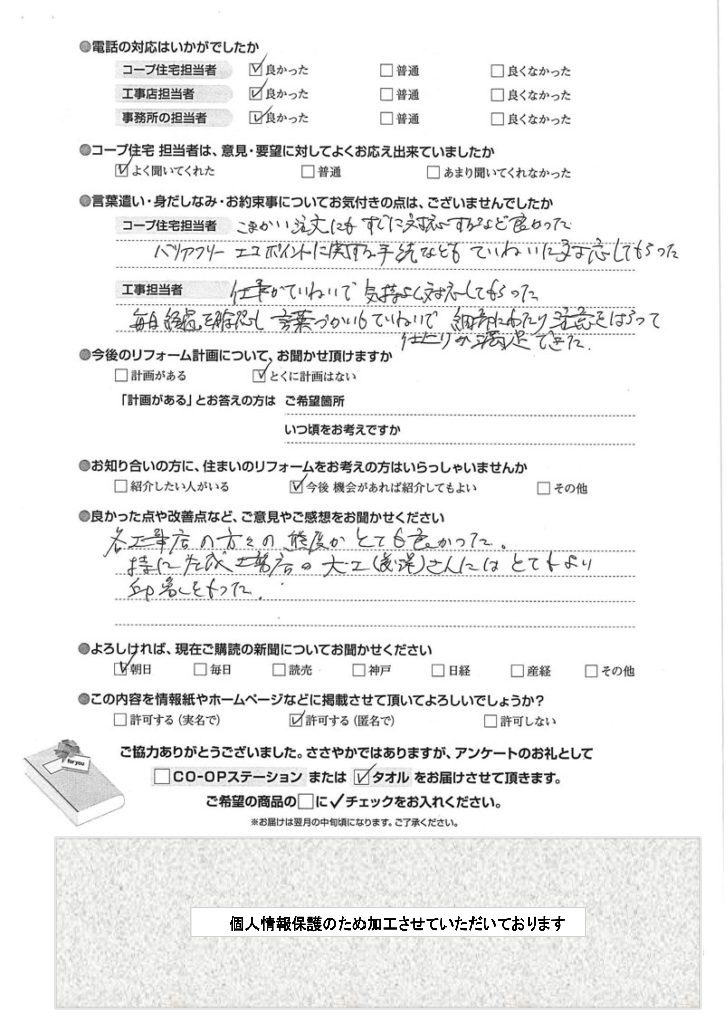 ●電話の対応はいかがでしたか
コープ住宅担当者 ☑良かった □普通 □良くなかった
工事店担当者 ☑良かった □普通 □良くなかった
事務所の担当者 ☑良かった □普通 □良くなかった
●コープ住宅 担当者は、意見・要望に対してよくお応え出来ていましたか
☑よく聞いてくれた □普通 □あまり聞いてくれなかった
●言葉遣い・身だしなみ・お約束事についてお気付きの点は、ございませんでしたか
コープ住宅担当者 こまかい注文にもすぐに対応するなど良かった
バリアフリー エコポイントに関する手続などもていねいに対応してもらった
工事担当者 仕事がていねいで気持よく対応してもらった
毎日 を確認し言葉づかいもていねいで 細部にわたり注意をはらって
仕上りが満足できた.
●今後のリフォーム計画について、お聞かせ頂けますか
□計画がある ☑とくに計画はない
「計画がある」とお答えの方は ご希望箇所
いつ頃をお考えですか
●お知り合いの方に、住まいのリフォームをお考えの方はいらっしゃいませんか
□紹介したい人がいる ☑今後 機会があれば紹介してもよい □その他
●良かった点や改善点など、ご意見やご感想をお聞かせください
各工事店の方々の態度がとても良かった.
特に 工務店の大工( )さんにはとてもよい
印象をもった.
●よろしければ、現在ご購読の新聞についてお聞かせください
☑朝日 □毎日 □読売 □神戸 □日経 □産経 □その他
●この内容を情報紙やホームページなどに掲載させて頂いてよろしいでしょうか?
□許可する(実名で) ☑許可する(匿名で) □許可しない
for you
ご協力ありがとうございました。ささやかではありますが、アンケートのお礼として
□CO-OPステーション または ☑タオル をお届けさせて頂きます。
ご希望の商品の□に✓チェックをお入れください。
※お届けは翌月の中旬頃になります。ご了承ください。
個人情報保護のため加工させていただいております